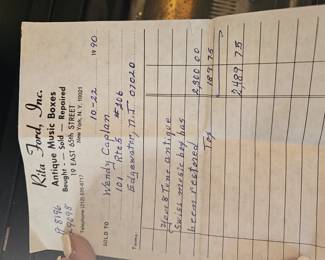 Rita Ford, Inc.
Antique Music Boxes
Bought - Sold - Repaired
19 EAST 65th STREET
New York, N.Y. 10021
Telephone (212) 535-6717
10-22 1990
SOLD TO Wendy Caplan
101 Rte 5 #206
Edgewater, N.J 07020
Terms:
8 Tune antique
Swiss music box has
been restored 2,300 00
Tax 189 75
2,489 75